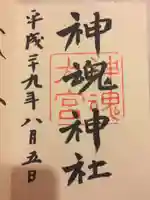 神魂神社
平成二十九年八月五日
神魂
大宮